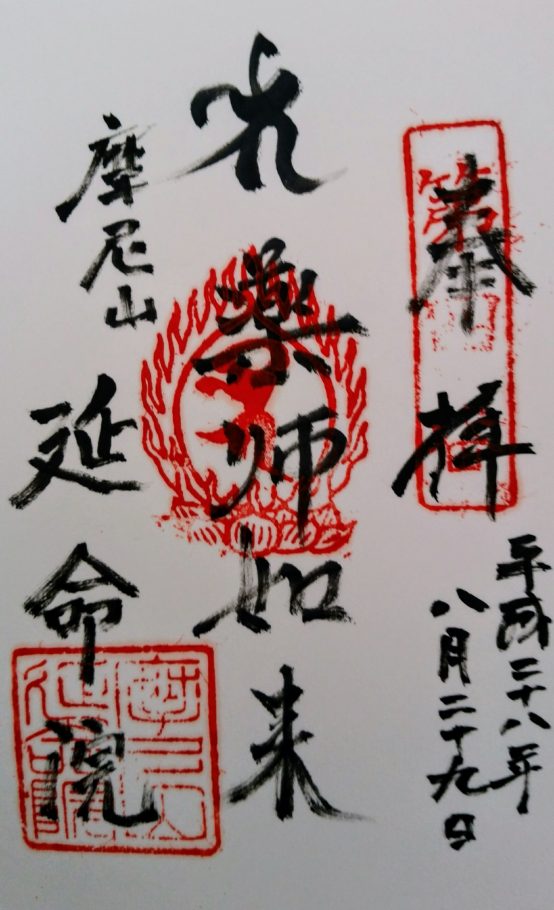 奉拝
平成二十八年
八月二十九日
薬師如来
摩尼山
延命院